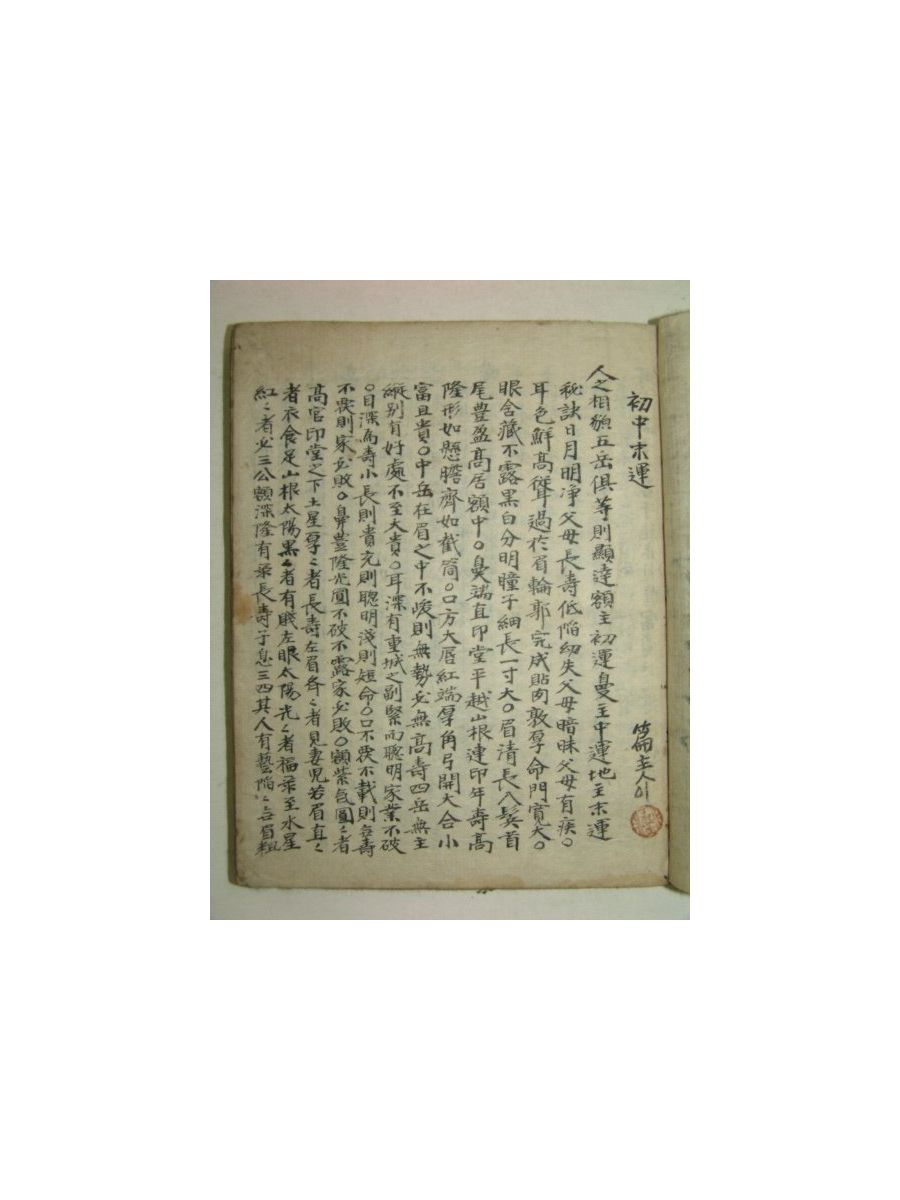 初中末運
篇主人
人之相貌五岳俱等則顯達額主初運鼻主中運地主末運
秘訣日月明净父母長壽低陷幼失父母暗昧父母有疾○
耳色鮮高聳過於眉輪郭完成貼肉敦厚命門寬大○
眼含藏不露黑白分明瞳子細長一寸大○眉清長入鬂首
尾豊盈高居額中○鼻端直印堂平越山根連印年壽高
隆形如懸膽齊如截筒○口方大唇紅端厚角弓開大合小
富且貴○中岳在眉之中不峻則無勢必無高壽四岳無主
縱別有好處不至大貴○耳深有重城之副緊而聰明家業不破
○目深爲壽小長則貴充則聰明淺則短命○口不
不載則
壽
不
則家必敗○鼻豊隆光圓不破不露家必敗○額紫氣圓〻者
高官印堂之下土星厚〻者長壽左眉
〻者見妻兒若眉直〻
者衣食足山根太陽黑〻者有賎左眼太陽光〻者福祿至水星
紅〻者必三公額深隆有
長壽子息三四其人有藝陷〻
眉粗